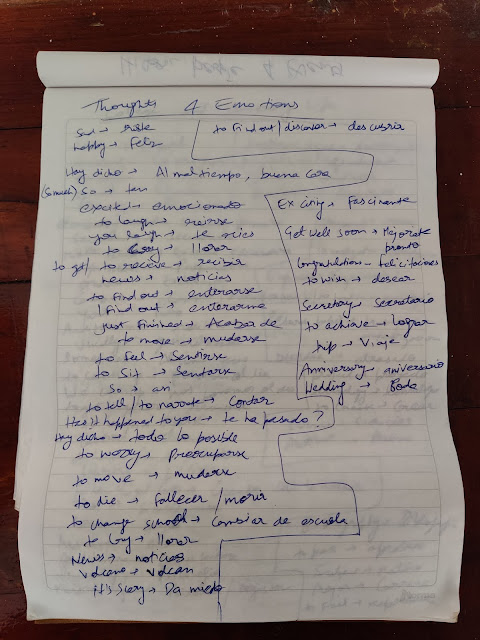 Thoughts & Emotions
Sad → triste
happy → Feliz
Hay dicho → Al mal tiempo, buena cara
(So much) So → tan
excited → emocionado
to laugh → reirse
you laugh → te ries
to Cry → llorar
to get/ to recieve → recibir
news → noticias
to find out → enterarse
I find out → enterarme
just finished → Acabar de
to move → mudarse
to feel → Sentirse
to Sit → Sentarse
So → asi
to tell / to narrate → Contar
Has it happened to you → te ha pasado?
Hay dicho → todo lo posible
to worry → Preocuparse
to move → mudarse
to die → fallecer / morir
to change school → Cambiar de escuela
to Cry → llorar
News → noticias
Volcano → Volcan
it's Scary → Da miedo
to find out / discover → descubrir
Exciting → Fascinante
Get well soon → Mejorate
pronto
Congratulation → felicitaciones
to wish → desear
Secretary → Secretario
to achieve → lograr
trip → Viaje
Anniversary → aniversario
Wedding → Boda